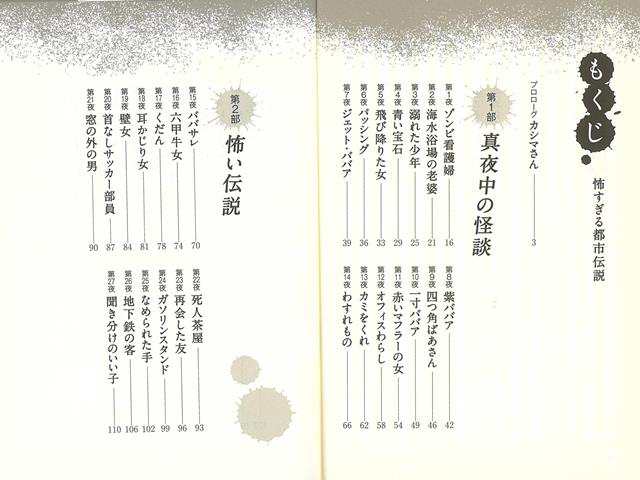 もくじ
怖すぎる都市伝説
プロローグ カシマさん 3
第1部 真夜中の怪談
第1夜 ゾンビ看護婦 16
第2夜 海水浴場の老婆 21
第3夜 溺れた少年 25
第4夜 青い宝石 29
第5夜 飛び降りた女 33
第6夜 パッシング 36
第7夜 ジェット・ババア 39
第8夜 紫ババア 42
第9夜 四つ角ばあさん 46
第10夜 一寸ババア 49
第11夜 赤いマフラーの女 54
第12夜 オフィスわらし 58
第13夜 カミをくれ 62
第14夜 わすれもの 66
第2部 怖い伝説
第15夜 ババサレ 70
第16夜 六甲牛女 74
第17夜 くだん 78
第18夜 耳かじり女 81
第19夜 壁女 84
第20夜 首なしサッカー部員 87
第21夜 窓の外の男 90
第22夜 死人茶屋 93
第23夜 再会した友 96
第24夜 ガソリンスタンド 99
第25夜 なめられた手 102
第26夜 地下鉄の客 106
第27夜 聞き分けのいい子 110